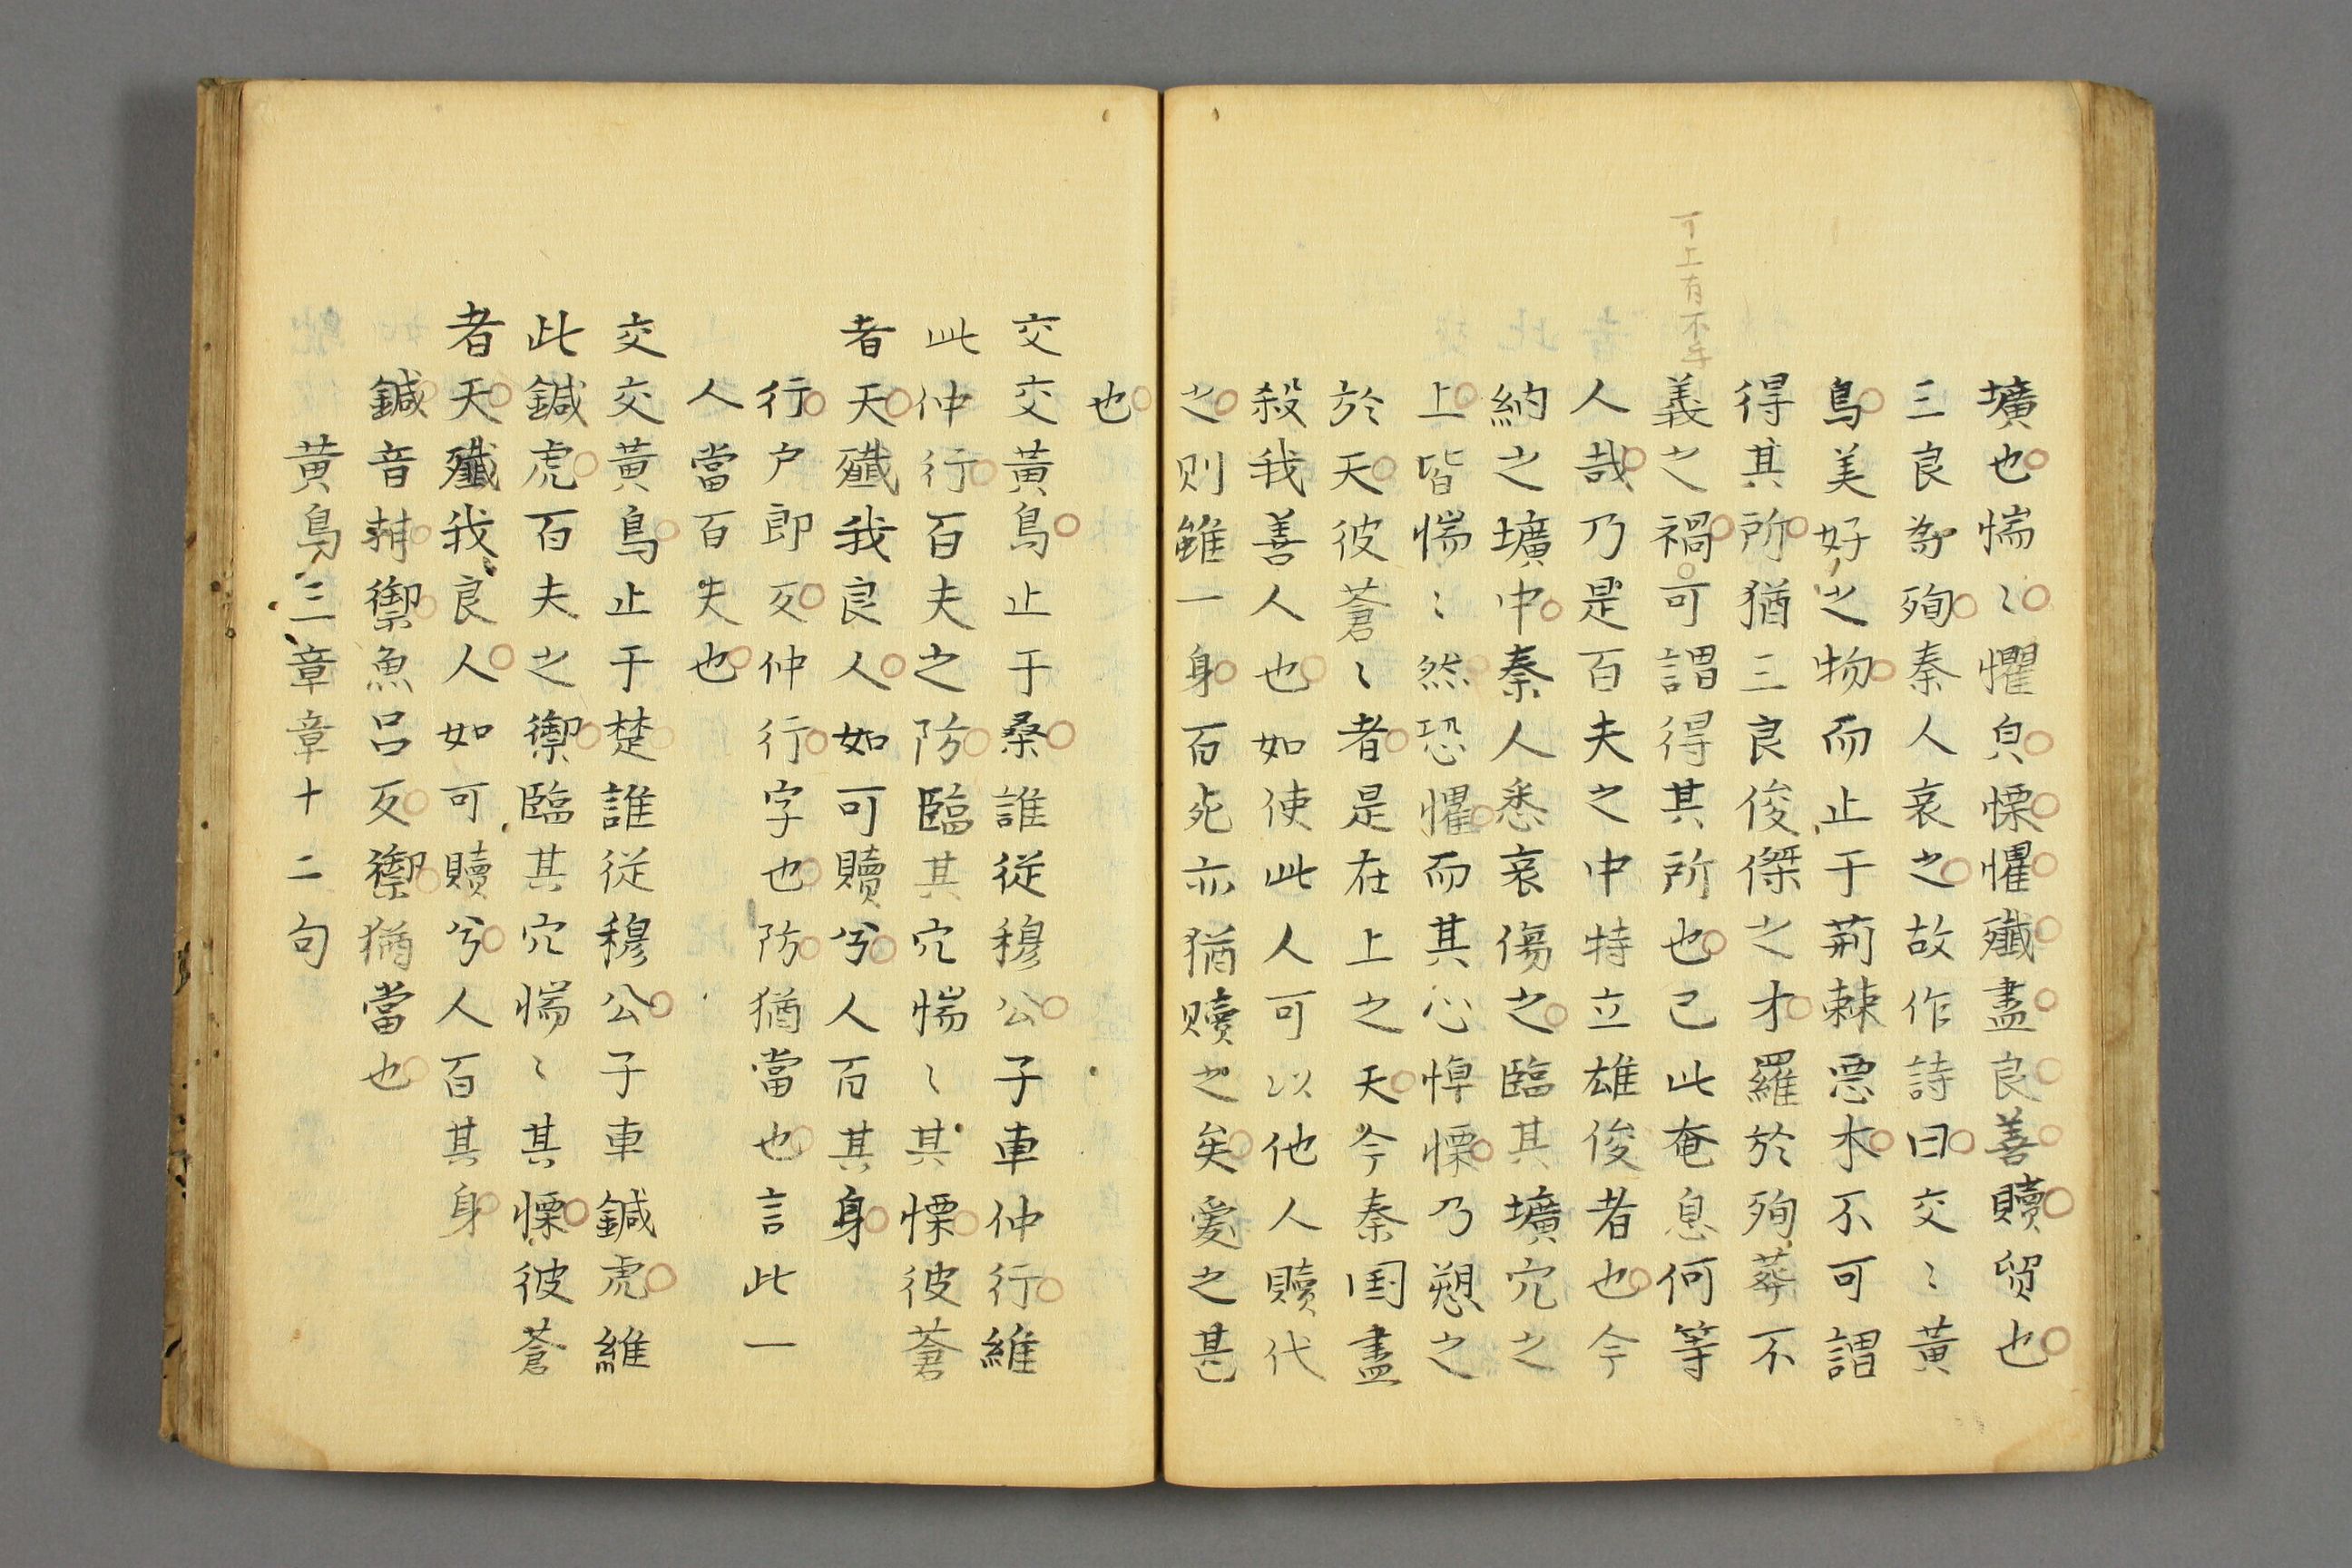 壙也惴〻懼皃慄懼殲盡良善贖贸也
三良為殉秦人哀之故作詩曰交〻黃
鳥美好之物而止于荊棘惡木不可謂
得其所猶三良俊傑之才羅於殉葬不
可上有不字
義之禍可謂得其所也已此奄息何等
人哉乃是百夫之中特立雄俊者也今
納之壙中秦人悉哀傷之臨其壙穴之
上皆惴〻然恐懼而其心悼慄乃愬之
於天彼蒼〻者是在上之天今秦国盡
殺我善人也如使此人可以他人贖代
之則雖一身百死亦猶贖之矣愛之甚
也
交交黃鳥止于桑誰從穆公子車仲行維
此仲行百夫之防臨其穴惴〻其慄彼蒼
者天殲我良人如可贖兮人百其身
行户郎反仲行字也防猶當也言此一
人當百夫也
交交黃鳥止于楚誰從穆公子車鍼虎維
此鍼虎百夫之禦臨其穴惴〻其慄彼蒼
者天殲我良人如可贖兮人百其身
鍼音禦魚呂反禦猶當也
黃鳥三章章十二句